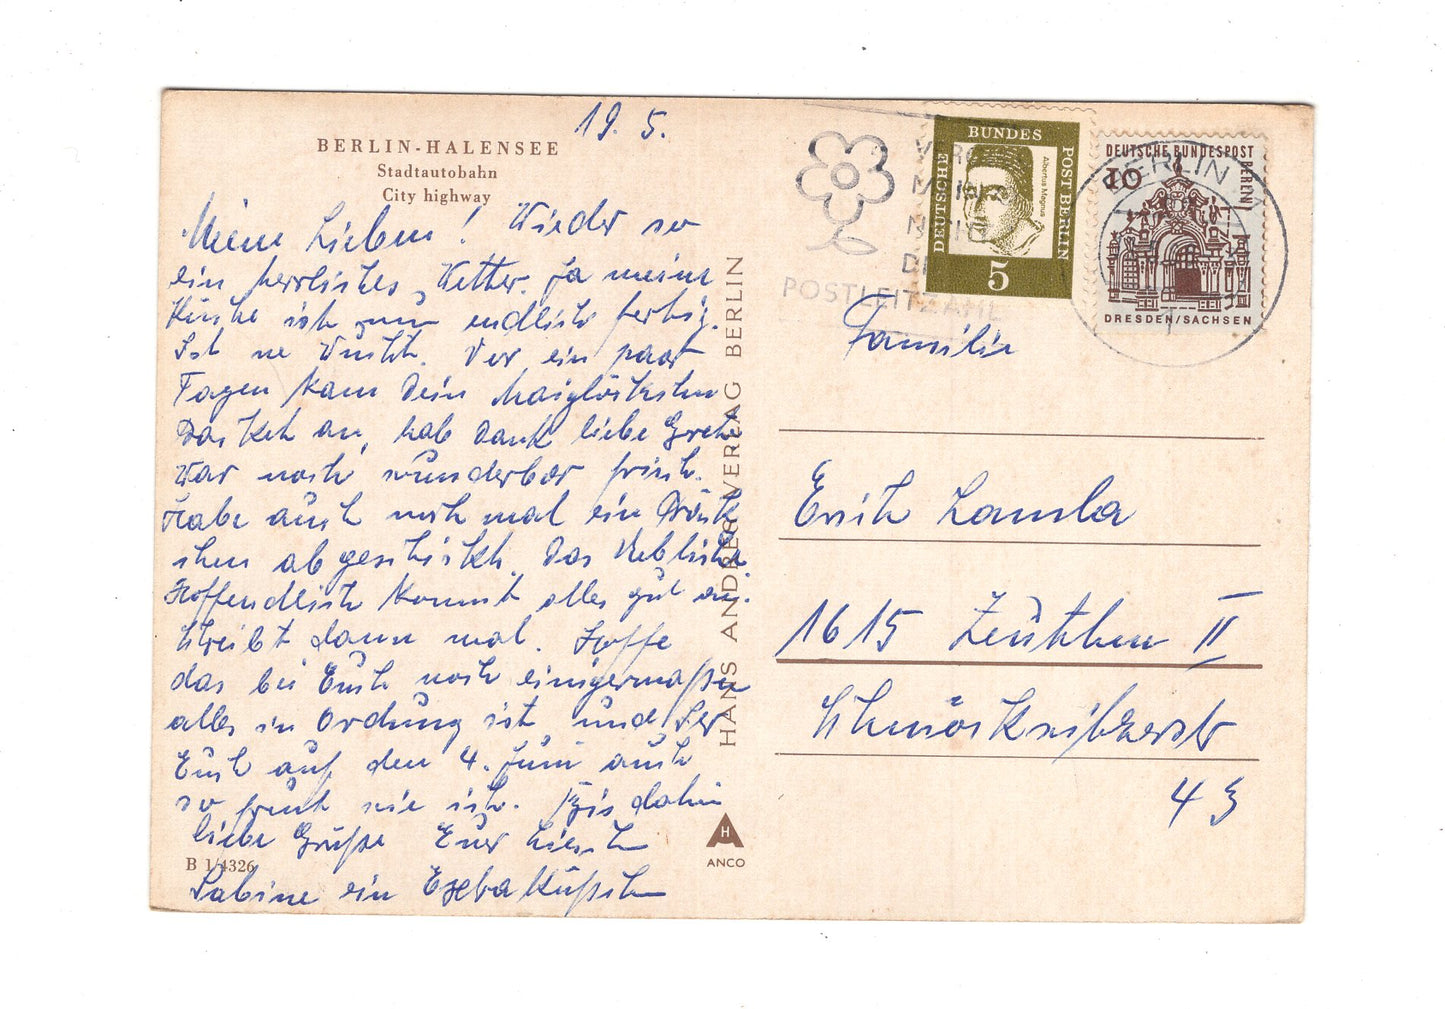 19. 5.
BERLIN-HALENSEE
Stadtautobahn
City highway
Meine Lieben! Wieder so
ein herrliches Wetter. Ja meine
Küche ist nun endlich fertig.
Ist ne Wucht. Vor ein paar
Tagen kam Dein Maiglöckchen
Paket an, hab Dank liebe Grete
War noch wunderbar frisch.
Habe auch noch mal ein
chen abgeschickt. Das
Hoffendlich kommt alles gut an.
Schreibt dann mal. Hoffe
das bei Euch noch einigermaßen
alles in Ordnung ist und Ihr
Euch auf den 4. Juni auch
so freut wie ich. Bis dahin
liebe Grüße Eure Lies.
Sabine ein Extra Küßchen
B 1/4326
HANS ANDRES VERLAG BERLIN
H
ANCO
POSTLEITZAHL
DEUTSCHE
BUNDES
POST BERLIN
Albertus Magnus
5
DEUTSCHE BUNDESPOST
BERLIN
10
DRESDEN/SACHSEN
BERLIN
Familie
Erich
1615 Zeuthen II
43